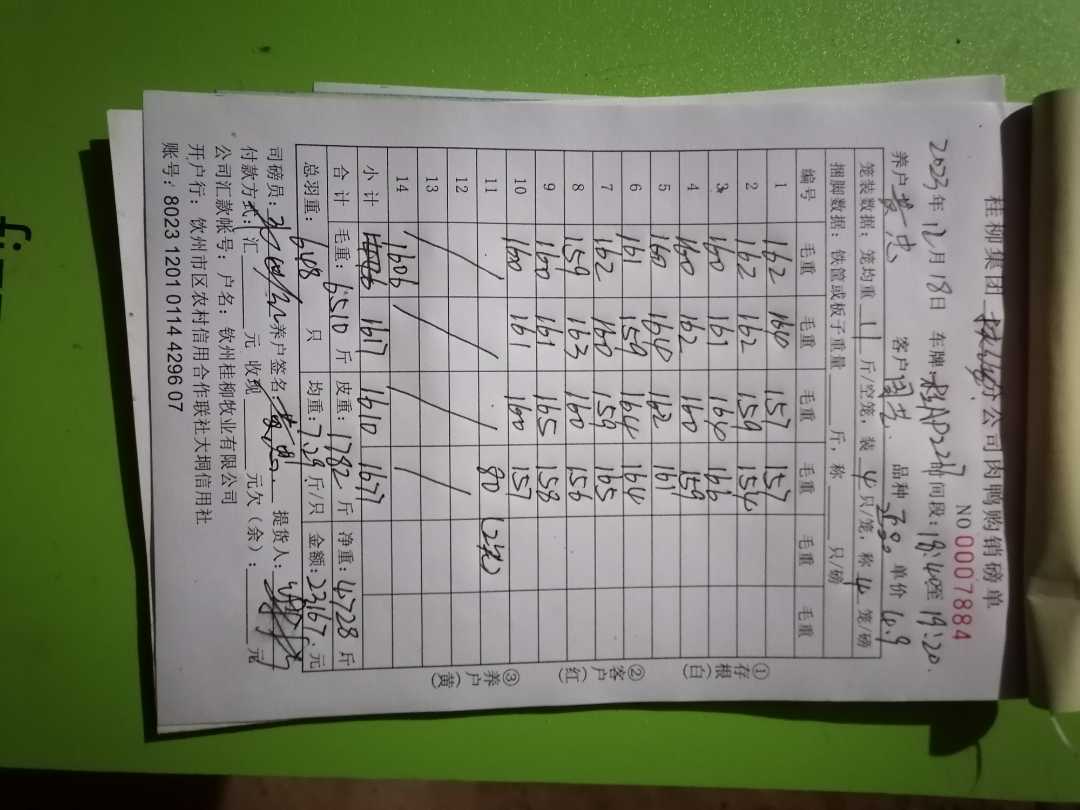 桂柳集团 分公司肉鸭购销磅单
NO 0007884
2023年12月18日 车牌:桂AP227 时间段:18:40至19:20
养户 黄忠 客户 周芝 品种 单价 4.9
笼装数据:笼均重 11 斤/空笼,装 4 只/笼,称 4 笼/磅
捆脚数据:铁筐或板子重量 斤,称 只/磅
编号 毛重 毛重 毛重 毛重 毛重 毛重
1 162 160 157 157
2 162 162 159 154
3 160 161 164 166
4 160 162 160 159
5 160 164 162 161
6 161 159 164 164
7 162 160 159 165
8 159 163 160 156
9 160 161 165 158
10 160 161 160 157
11 80 (2笼)
12
13
14 1606
小计 1617 1610 1677
合计 毛重:6510 斤 皮重:1782 斤 净重:4728 斤
总羽重:648 只 均重:7.29 斤/只 金额:23167 元
司磅员: 养户签名: 提货人:
付款方式:汇 元 收现 元欠(余): 元
公司汇款帐号:户名:钦州桂柳牧业有限公司
开户行:钦州市区农村信用合作联社大垌信用社
账号:8023 1201 0114 4296 07
①存根(白)
②客户(红)
③养户(黄)